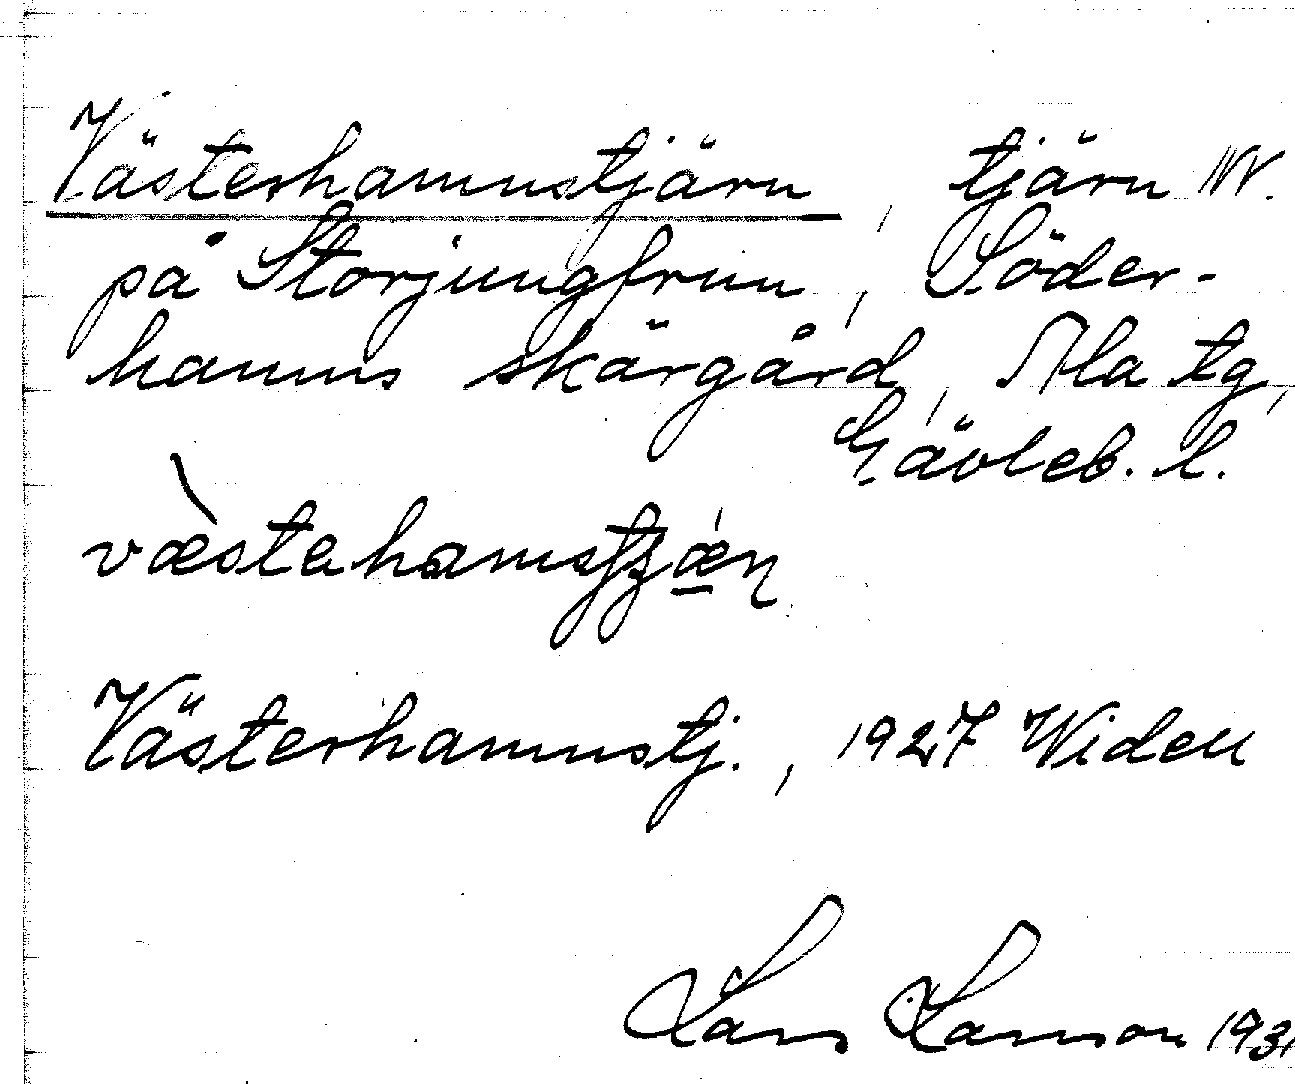 Västerhamnstjärn, tjärn W.
på Storjungfrun, Söder-
hamns skärgård, Ala tg,
Gävleb. l.
væstehamstjæɳ
Västerhamnstj., 1927 Widell
Lars Larsson